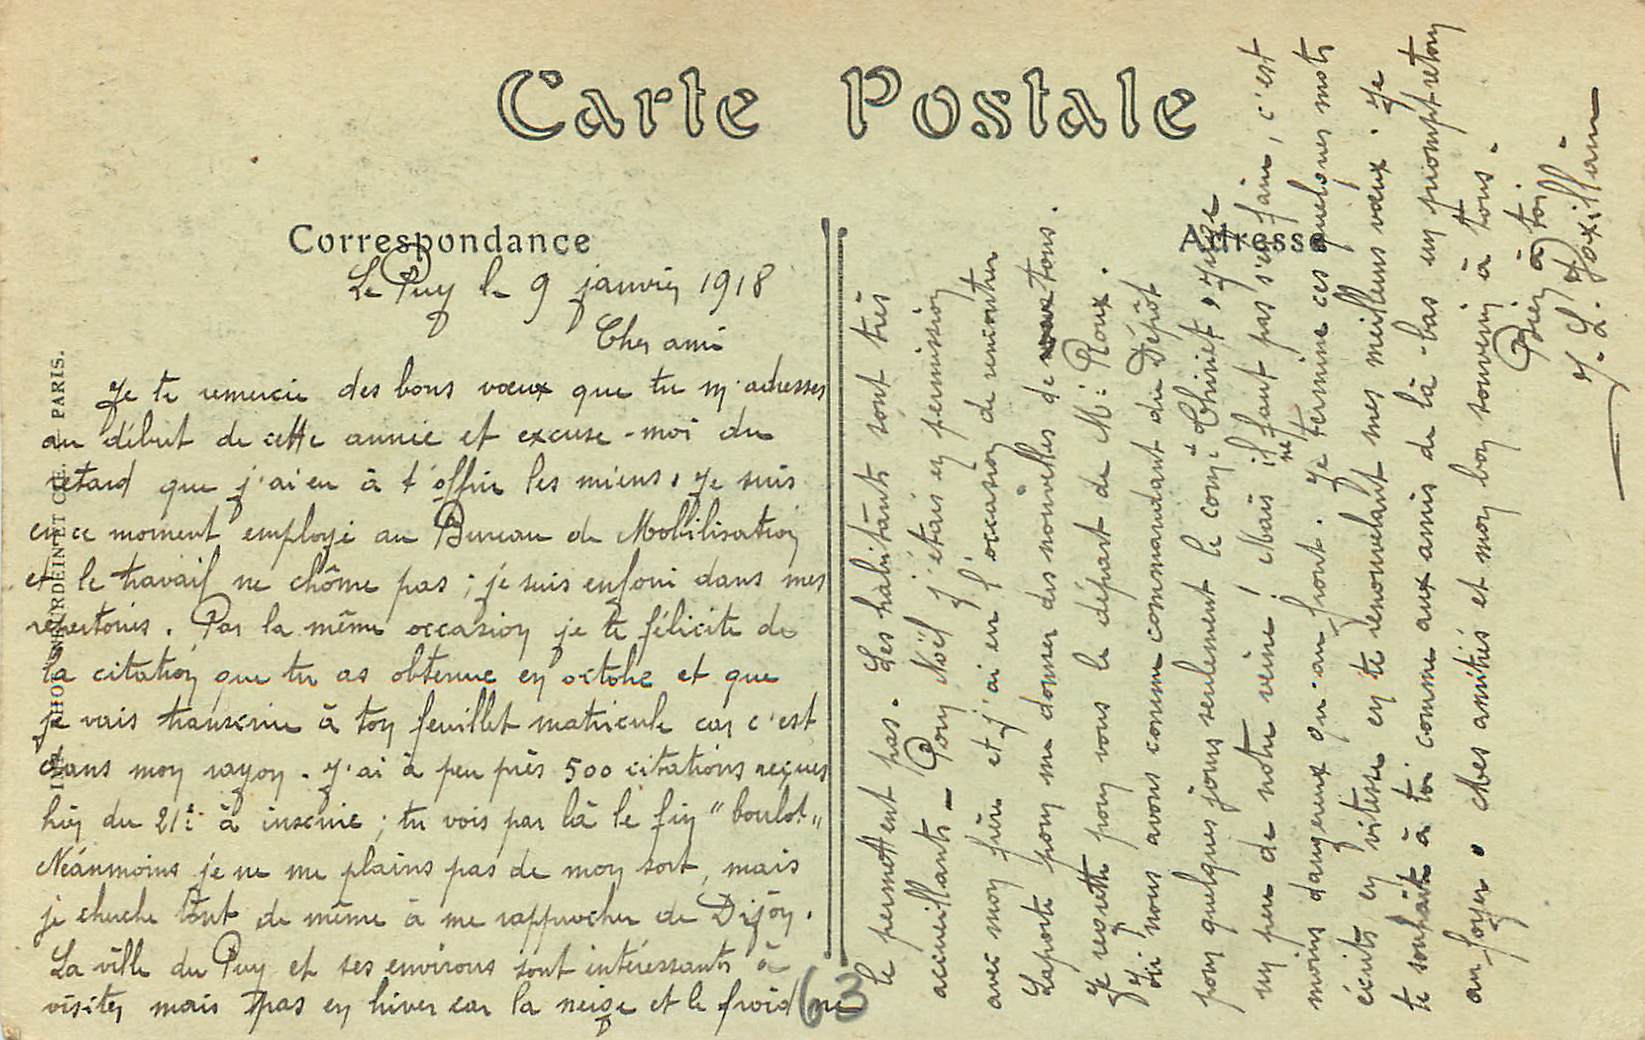 Carte Postale
Correspondance
Adresse
Le Puy le 9 janvier 1918
Cher ami
Je te remercie des bons vœux que tu m'adresses
au début de cette année et excuse-moi du
retard que j'ai eu à t'offrir les miens. Je suis
en ce moment employé au Bureau de Mobilisation
et le travail ne chôme pas ; je suis enfoui dans mes
répertoires. Par la même occasion je te félicite de
la citation que tu as obtenue en octobre et que
je vais transcrire à ton feuillet matricule car c'est
dans mon rayon. J'ai à peu près 500 citations reçues
hier du 21e à inscrire ; tu vois par là le fin "boulot"
Néanmoins je ne me plains pas de mon sort, mais
je cherche tout de même à me rapprocher de Dijon.
La ville du Puy et ses environs sont intéressants à
visiter mais pas en hiver car la neige et le froid ne
63
le permettent pas. Les habitants sont très
accueillants – Pour Noël j'étais en permission
avec mon frère et j'ai eu l'occasion de rencontrer
Laporte pour me donner des nouvelles de tous.
Je regrette pour vous le départ de M: Roux.
Ici nous avons comme commandant du Dépôt
pour quelques jours seulement le comt Thiriet, juge
un peu de notre veine ! Mais il ne faut pas s'en faire, c'est
moins dangereux qu'au front. Je termine ces quelques mots
écrits en vitesse en te renouvelant mes meilleurs vœux. Je
te souhaite à toi comme aux amis de là-bas un prompt retour
au foyer. Mes amitiés et mon bon souvenir à tous.
Bien à toi.
PARIS.